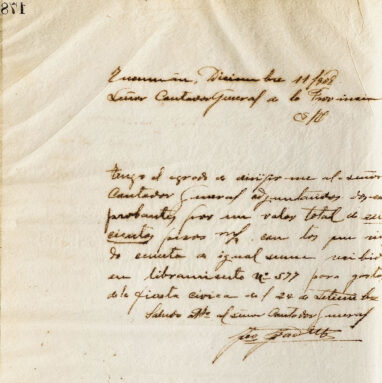 178
Tucumán, Diciembre 11/908
Señor Contador General de la Provincia
S/D
Tengo el agrado de dirijirme al señor
Contador General adjuntandos dos com
probantes por un valor total de
cientos pesos m/n. con los que rin
do cuenta de igual suma recibid
en libramiento Nº 577 para gastos
de la fiesta civica del 24 de Setiembre
Saludo Atte al señor Contador General